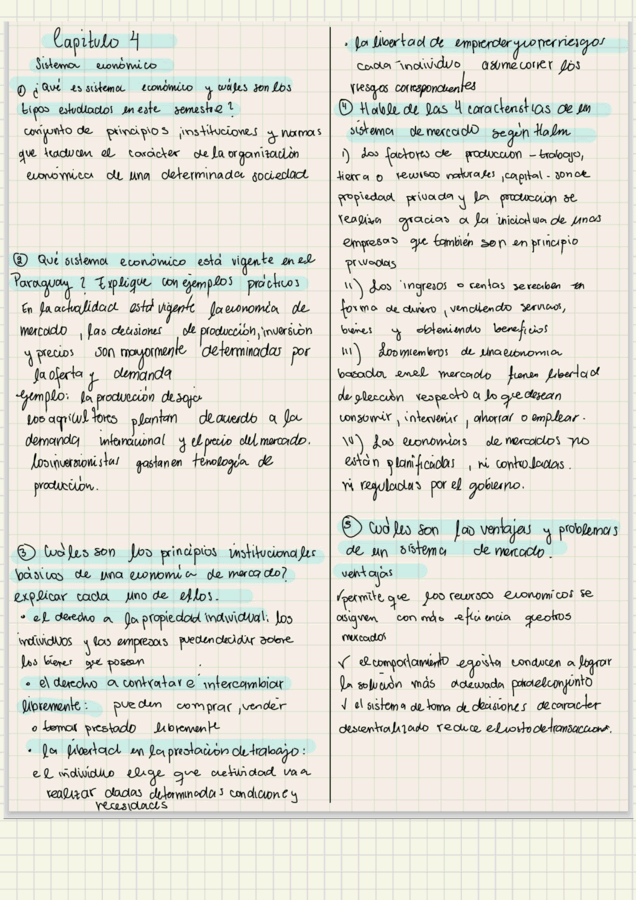 Capitulo 4
Sistema económico
① ¿Qué es sistema económico y cuáles son los
tipos estudiados en este semestre?
conjunto de principios, instituciones y normas
que traducen el carácter de la organización
económica de una determinada sociedad
② Qué sistema económico está vigente en el
Paraguay? Explique con ejemplos prácticos
En la actualidad está vigente la economía de
mercado, las decisiones de producción, inversión
y precios son mayormente determinadas por
la oferta y demanda
ejemplo: la producción de soja
los agricultores plantan de acuerdo a la
demanda internacional y el precio del mercado.
los inversionistas gastan en tenología de
producción.
③ Cuáles son los principios institucionales
básicos de una economía de mercado?
explicar cada uno de ellos.
• el derecho a la propiedad individual: los
individuos y las empresas pueden decidir sobre
los bienes que poseen
• el derecho a contratar e intercambiar
libremente: pueden comprar, vender
o tomar prestado libremente
• la libertad en la prestación de trabajo:
el individuo elige que actividad va a
realizar dadas determinadas condicione y
necesidades
• la libertad de emprender y correr riesgos
cada individuo asume correr los
riesgos correspondientes
④ Hable de las 4 características de un
sistema de mercado según Halm
i) Los factores de produccion - trabajo,
tierra o recursos naturales, capital - son de
propiedad privada y la producción se
realiza gracias a la iniciativa de unas
empresas que también son en principio
privadas
ii) Los ingresos o rentas se reciben en
forma de dinero, vendiendo servicios,
bienes y obteniendo beneficios
iii) Los miembros de una economia
basada en el mercado tienen libertad
de elección respecto a lo que desean
consumir, intervenir, ahorrar o emplear.
iv) Las economías de mercados no
están planificadas, ni controladas.
ni reguladas por el gobierno.
⑤ Cuáles son las ventajas y problemas
de un sistema de mercado.
ventajas
✓ permite que los recursos economicos se
asignen con más eficiencia que otros
mercados
✓ el comportamiento egoista conducen a lograr
la solución más adecuada para el conjunto
✓ el sistema de toma de decisiones de caracter
descentralizado reduce el costo de transacciones.